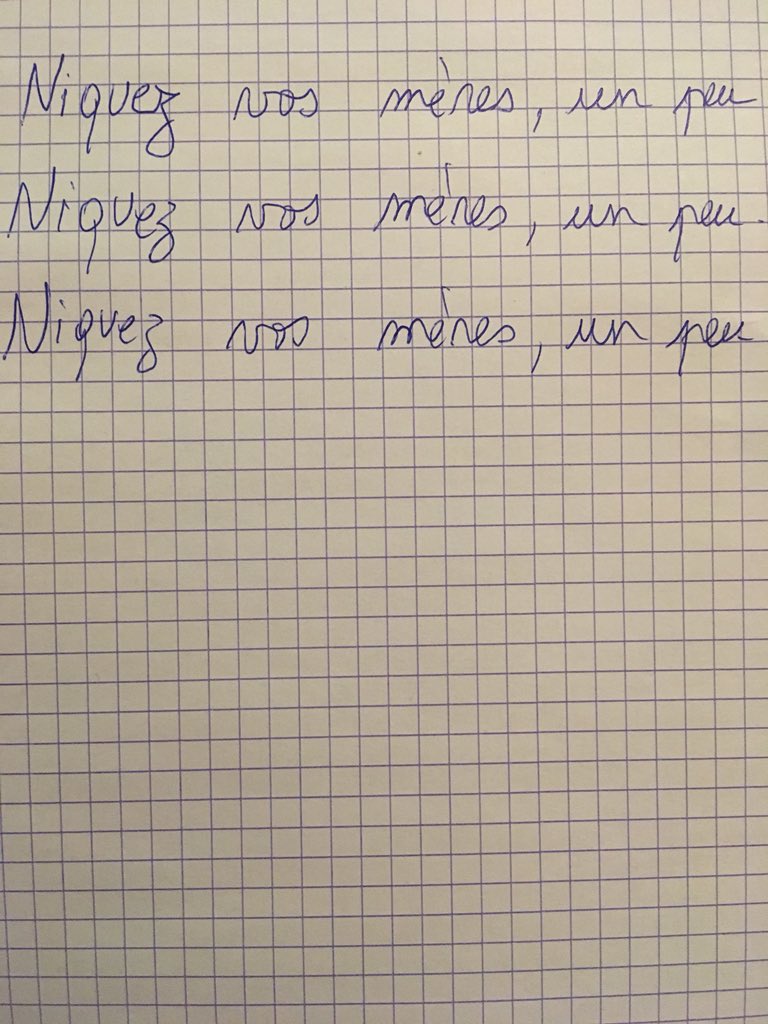 Niquez vos mères, un peu
Niquez vos mères, un peu.
Niquez vos mères, un peu